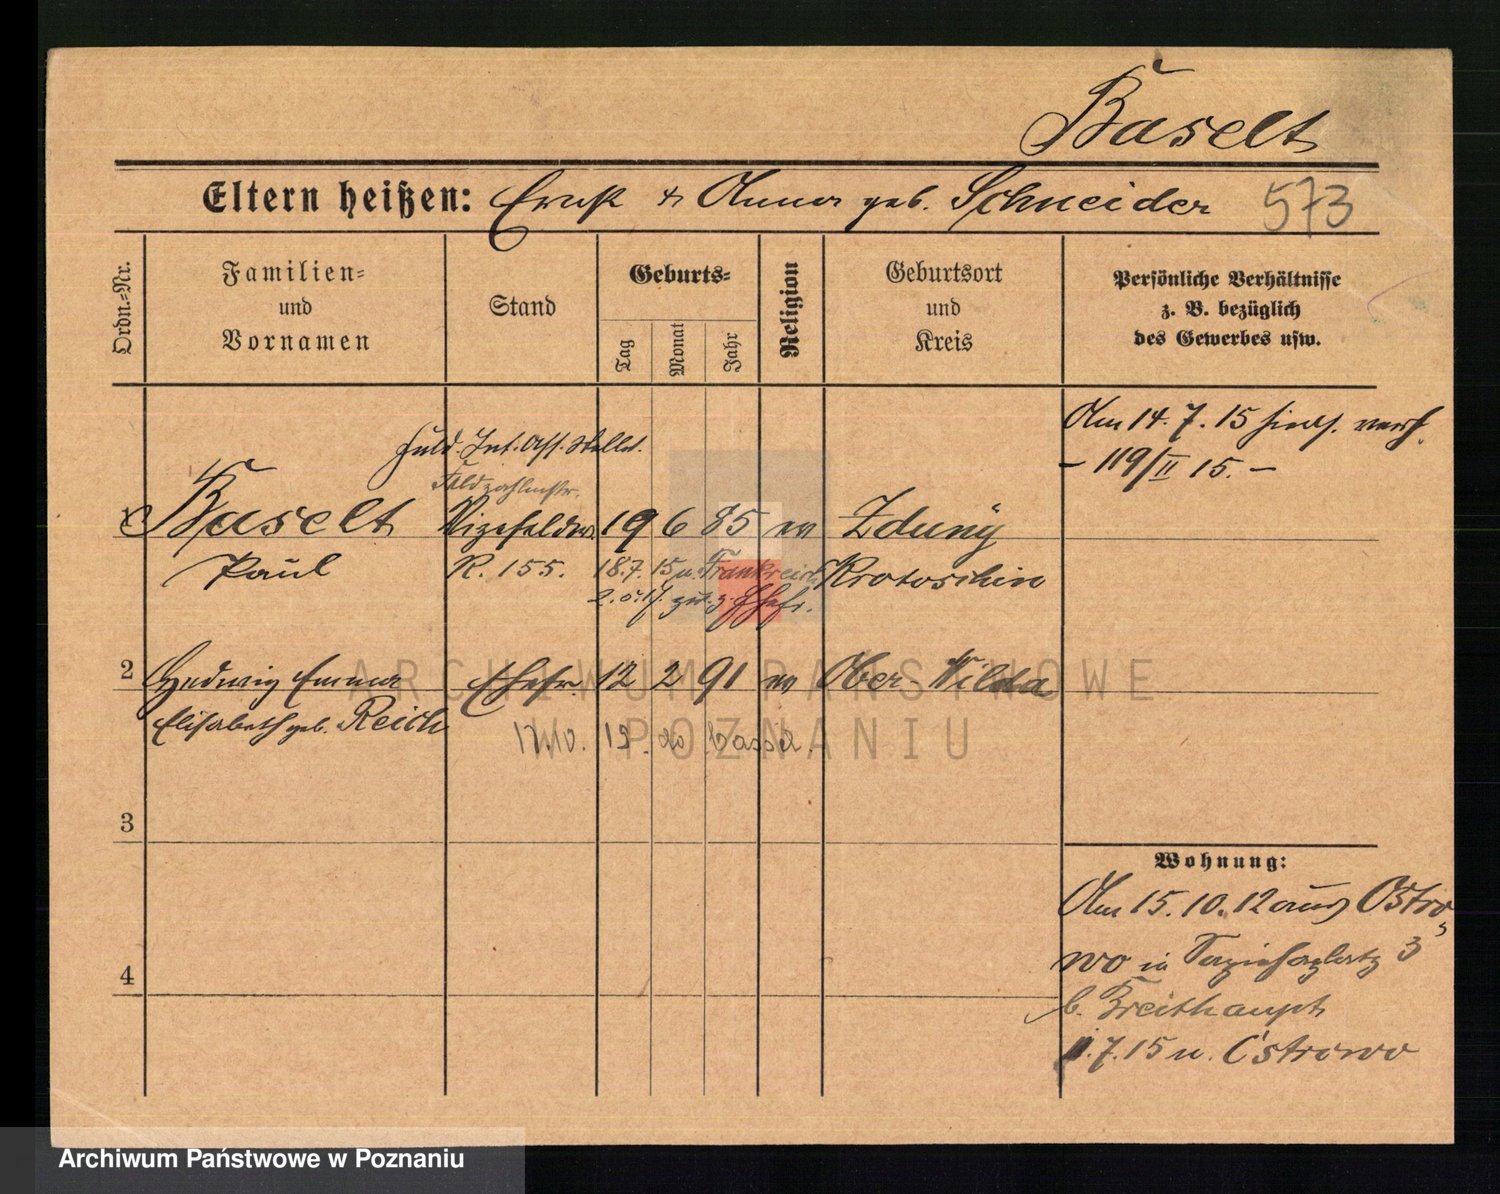 Baselt
Eltern heißen: Ernst & Anna geb. Schneider 573
Ordn.-Nr.
Familien-
und
Vornamen
Stand
Geburts-
Tag
Monat
Jahr
Religion
Geburtsort
und
Kreis
Persönliche Verhältnisse
z. B. bezüglich
des Gewerbes usw.
Am 14. 7. 15
- 119/II 15. -
Int. Ass. Stellv.
Feldzahlmstr.
1 Baselt Vizefeldw. 19 6 85 ev Zduny
Paul R. 155. 18.7. 15 n. Frankreich Krotoschin
2 Hedwig Emma Ehefr. 12 2 91 ev Ober-Wilda
Elisabeth geb. Reich
3
4
Wohnung:
Am 15. 10. 12 aus Ostro
wo in 3
b. Breithaupt
7. 15 n. Ostrowo
ARCHIWUM PAŃSTWOWE
W POZNANIU
Archiwum Państwowe w Poznaniu